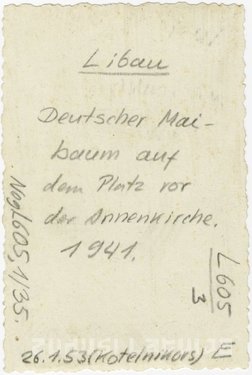 Libau
Deutscher Mai-
baum auf
dem Platz vor
der Annenkirche.
1941.
Neg. L605, 1/35.
L605
3
26.1.53 (Kotelnikovs)